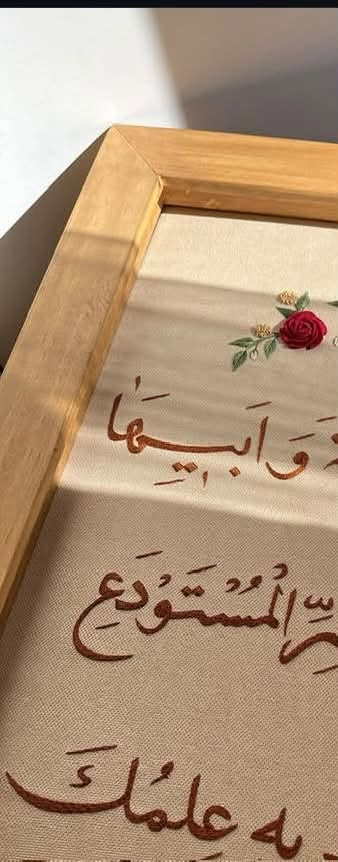 وَاَبيــهٰا
المُسْتَوْدَعِ
بِهِ عِلْمُكَ